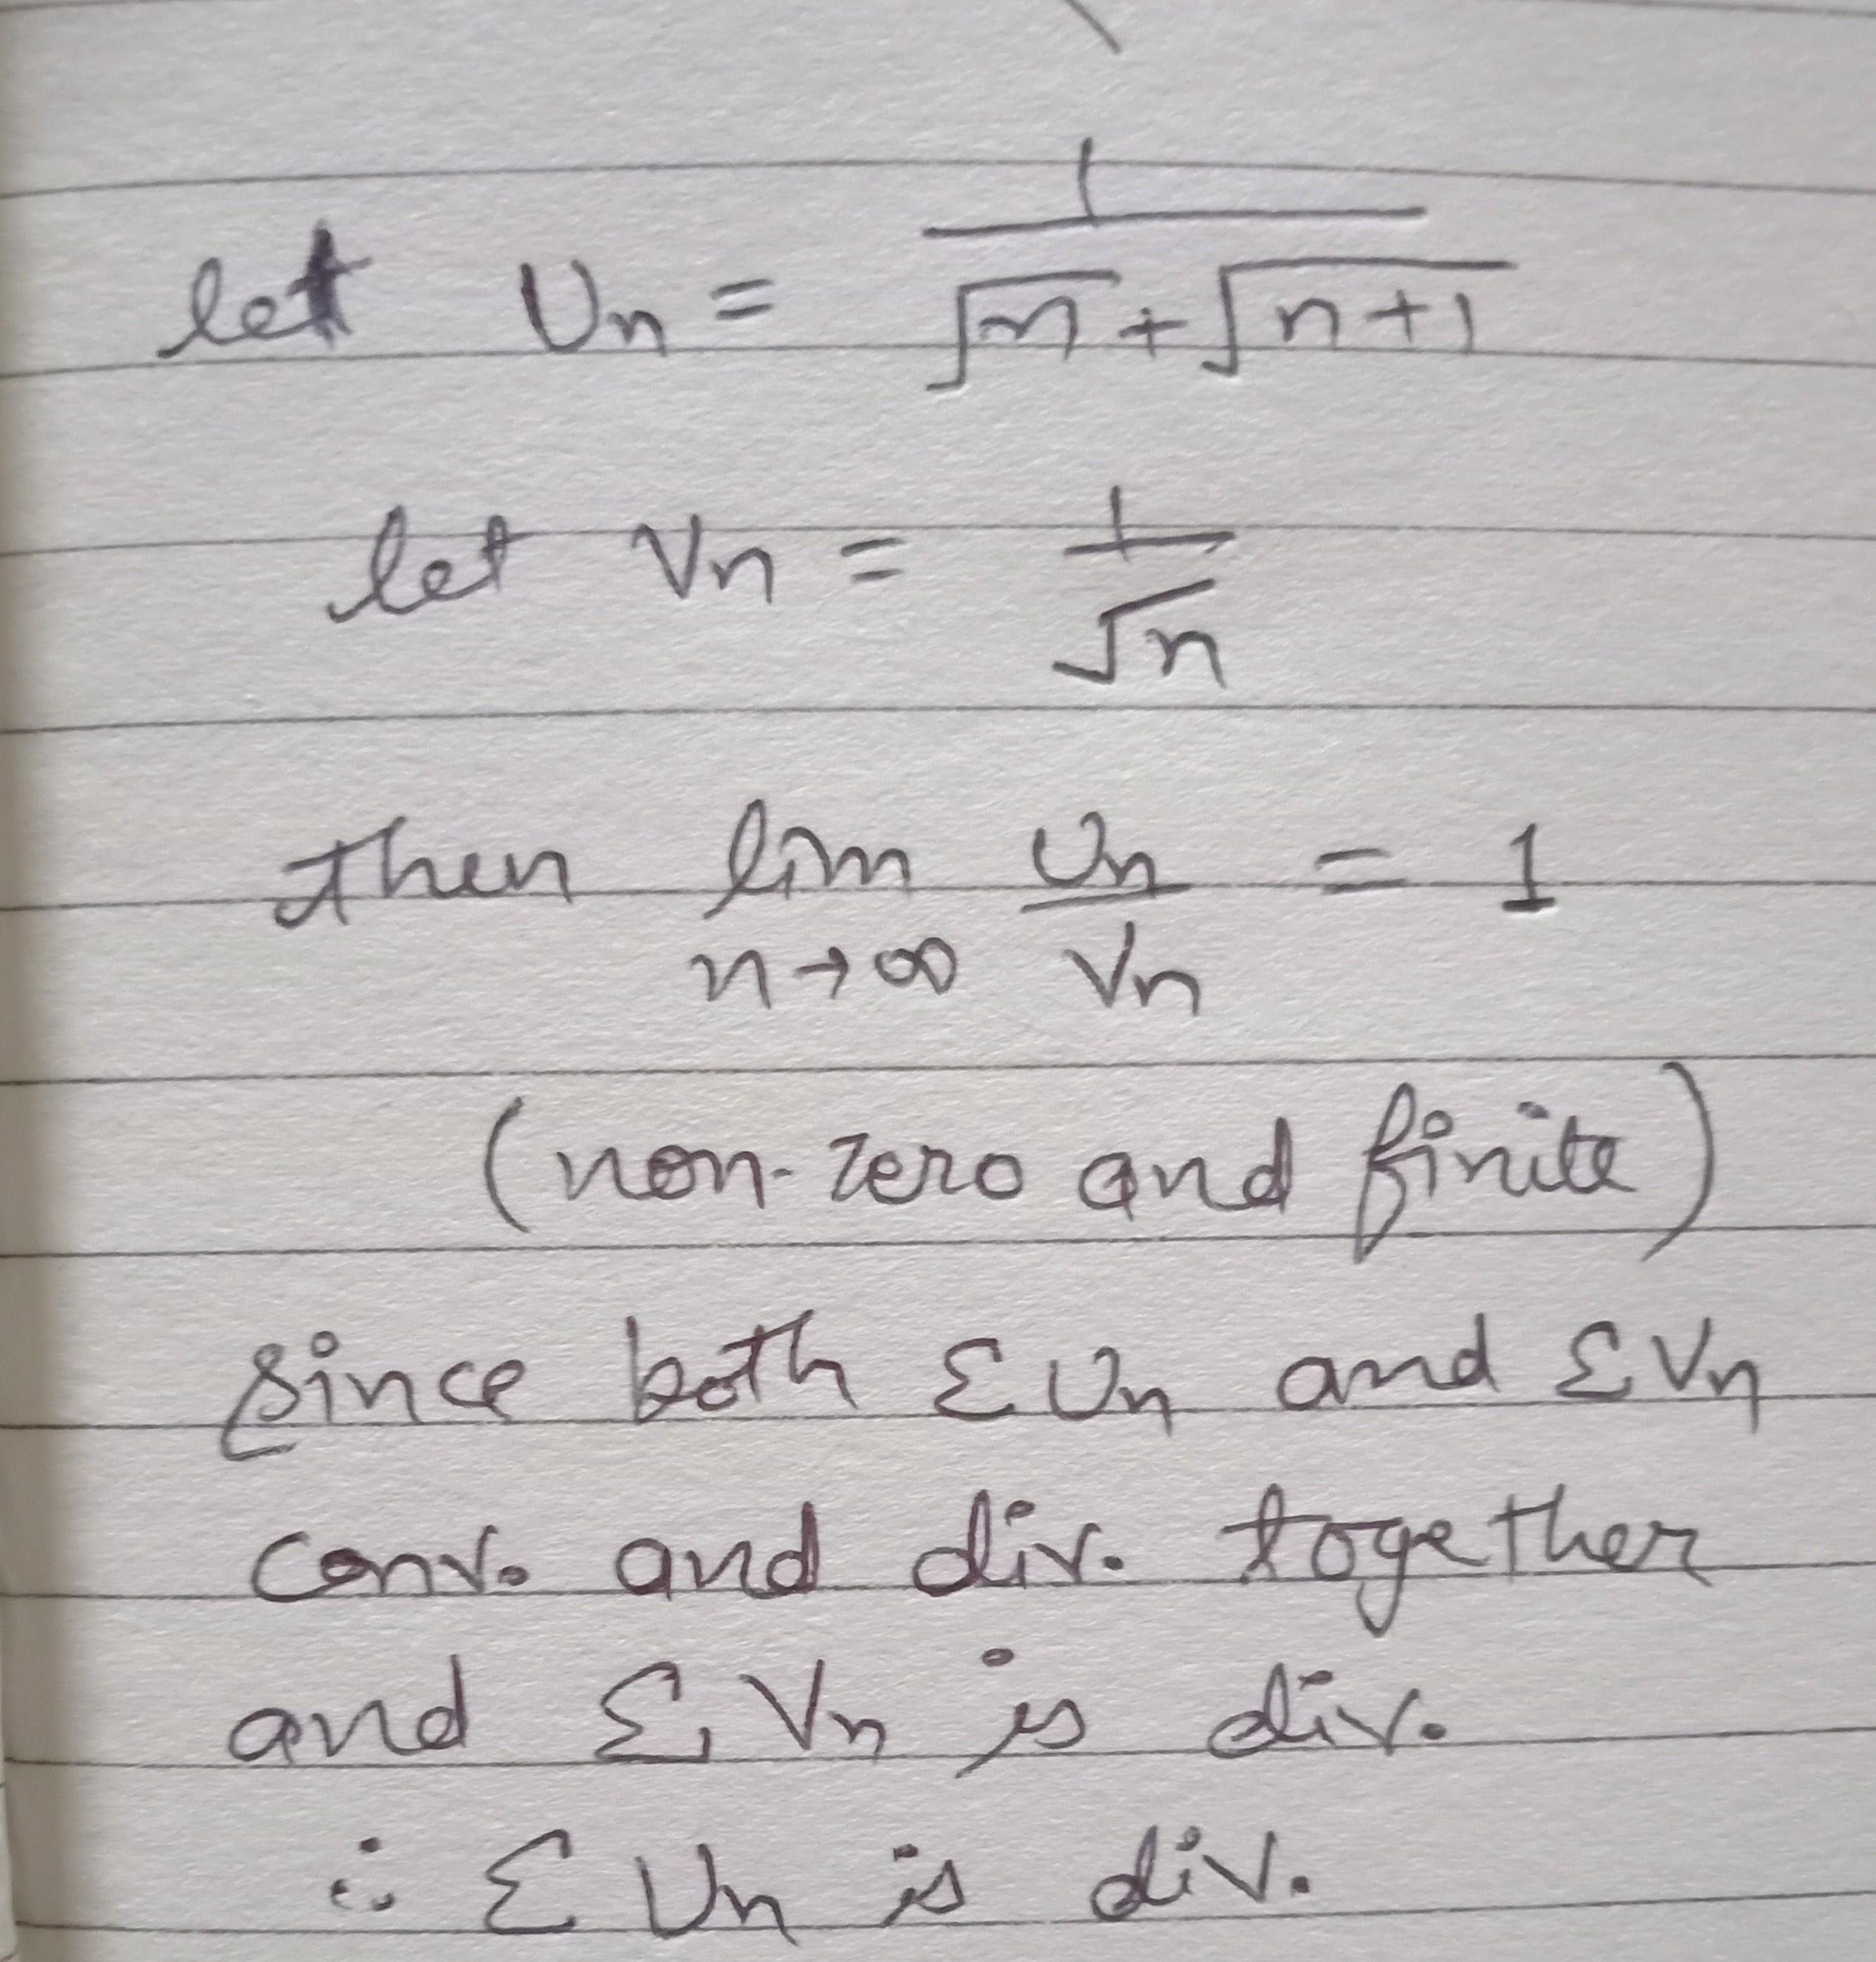 let Un = 1/(√n + √(n+1))
let Vn = 1/√n
then lim n→∞ Un/Vn = 1
(non-zero and finite)
Since both Σ Un and Σ Vn
conv. and div. together
and Σ Vn is div.
∴ Σ Un is div.